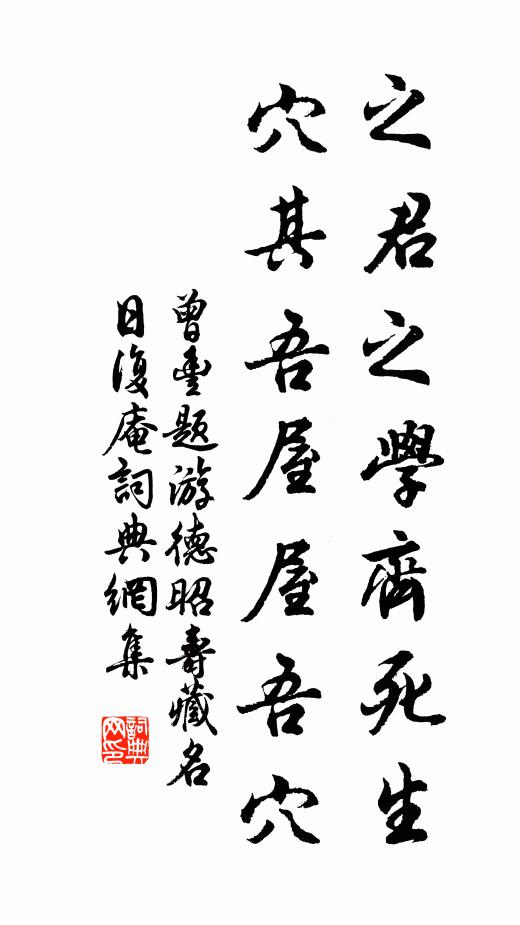 之君之學齊死生
穴其吾屋屋吾穴
曾豐題游德昭壽藏名
日復庵詞典網集
詞典網印